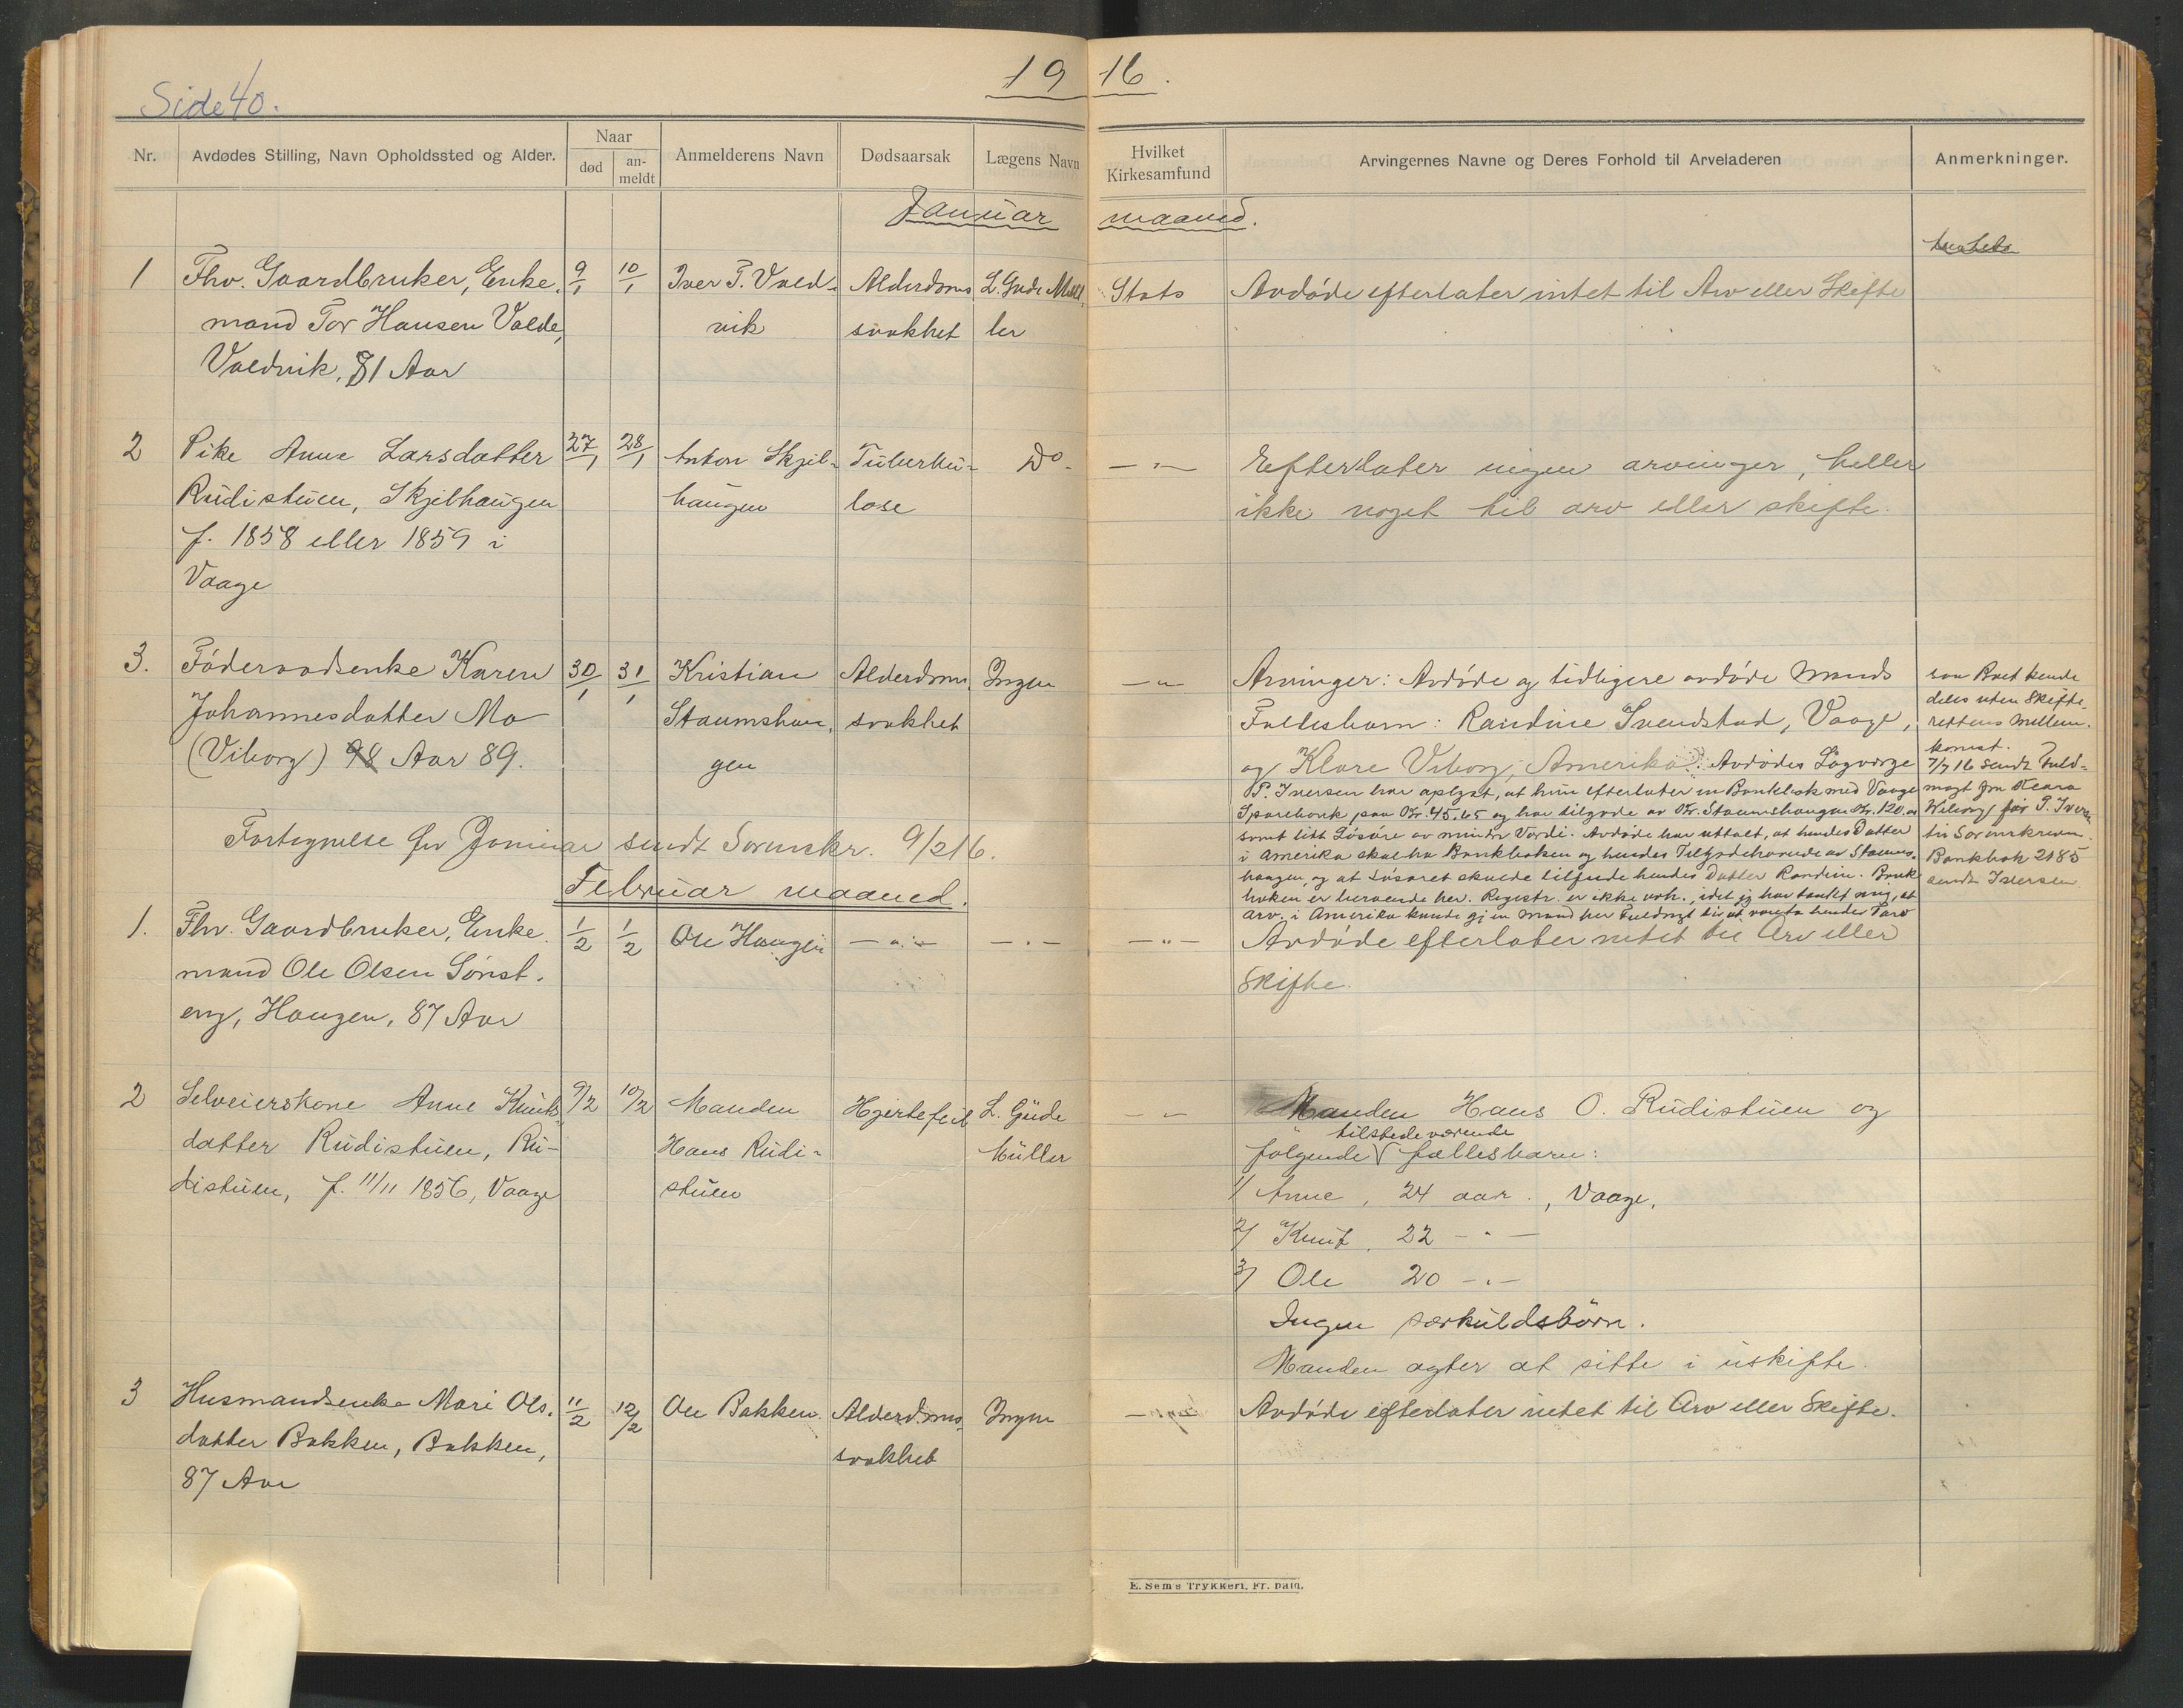 Side 40.
19 16.
Nr.
Avdødes Stilling, Navn Opholdssted og Alder.
Naar
død
an-
meldt
Anmelderens Navn
Dødsaarsak
Lægens Navn
Hvilket
Kirkesamfund
Arvingernes Navne og Deres Forhold til Arveladeren
Anmerkninger.
Januar maaned.
1 Fhv. Gaardbruker, Enke- 9/1 10/1 Iver T. Vald- Alderdoms L. Gude Møl- Stats Avdøde efterlater intet til Arv eller Skifte
mand Tor Hansen Valde, vik svakhet ler
Valdvik, 81 Aar
2 Pike Anne Larsdatter 27/1 28/1 Anton Skjel- Tuberku- Do - " - Efterlater ingen arvinger, heller
Rudistuen, Skjelhaugen haugen lose ikke noget til arv eller skifte.
f. 1858 eller 1859 i
Vaage
3. Føderaadsenke Karen 30/1 31/1 Kristian Alderdoms Ingen - " - Arvinger: Avdøde og tidligere avdøde Mands
Johannesdatter Mo Staumshau- svakhet Fællesbarn: Randine Svendstad, Vaage,
(Viborg) 98 Aar 89. gen og Klare Viborg, Amerika. Avdødes Lagværge
P. Iversen har oplyst, at hun efterlater en Bankbok med Vaage
Sparebank paa Kr. 45.65 og har tilgode av Kr. Staumshaugen Kr. 120.00
samt litt Løsøre av mindre Værdi. Avdøde har uttalt, at hendes Datter
i Amerika skal ha Bankboken og hendes Tilgodehavende av Staums-
haugen, og at Løsøret skulde tilfalde hendes Datter Randine. Bank
boken er beroende her. Registr. er ikke avh., idet jeg har tænkt mig, at
arv. i Amerika kunde gi en Mand her Fuldmagt til at vareta hendes Tarv
deles uten Skifte-
rettens Mellem-
komst.
7/7 16 sendt Fuld-
magt fra Klara
Wiborg for P. Iversen
til Sorenskriveren.
Bankbok 2185
sendt Iversen.
Fortegnelse for Januar sendt Sorenskr. 9/2 16.
Februar maaned.
1. Fhv. Gaardbruker, Enke- 1/2 1/2 Ole Haugen - " - - " - - " - Avdøde efterlater intet til Arv eller
mand Ole Olsen Sønst- Skifte.
eng, Haugen, 87 Aar
2 Selveierskone Anne Knuts- 9/2 10/2 Manden Hjertefeil L. Gude - " - Manden Hans O. Rudistuen og
datter Rudistuen, Ru- Hans Rudi- Müller følgende tilstedeværende fællesbarn:
distuen, f. 11/11 1856, Vaage stuen 1/ Anne, 24 aar, Vaage,
2/ Knut, 22 - " -
3/ Ole 20 - " -
Ingen særkuldsbørn.
Manden agter at sitte i uskifte.
3 Husmandsenke Mari Ols- 11/2 12/2 Ole Bakken Alderdoms Ingen - " - Avdøde efterlater intet til Arv eller Skifte.
datter Bakken, Bakken, svakhet
87 Aar
E. Sem's Trykkeri, Fr. hald.